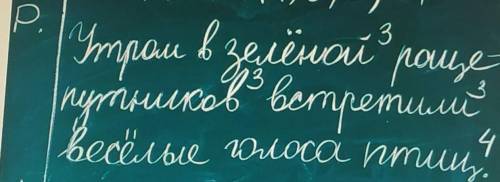 Р. Утром в зелёной³ роще
путников³ встретили³
весёлые голоса птиц.⁴